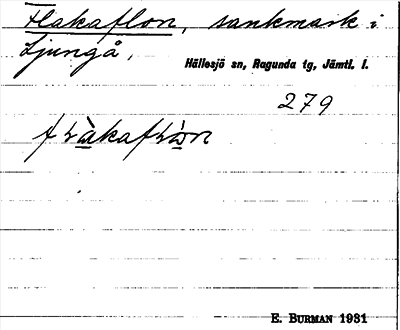 Flakaflon, sankmark i
Ljungå,
Hällesjö sn, Ragunda tg, Jämtl. l.
279
E. BURMAN 1931